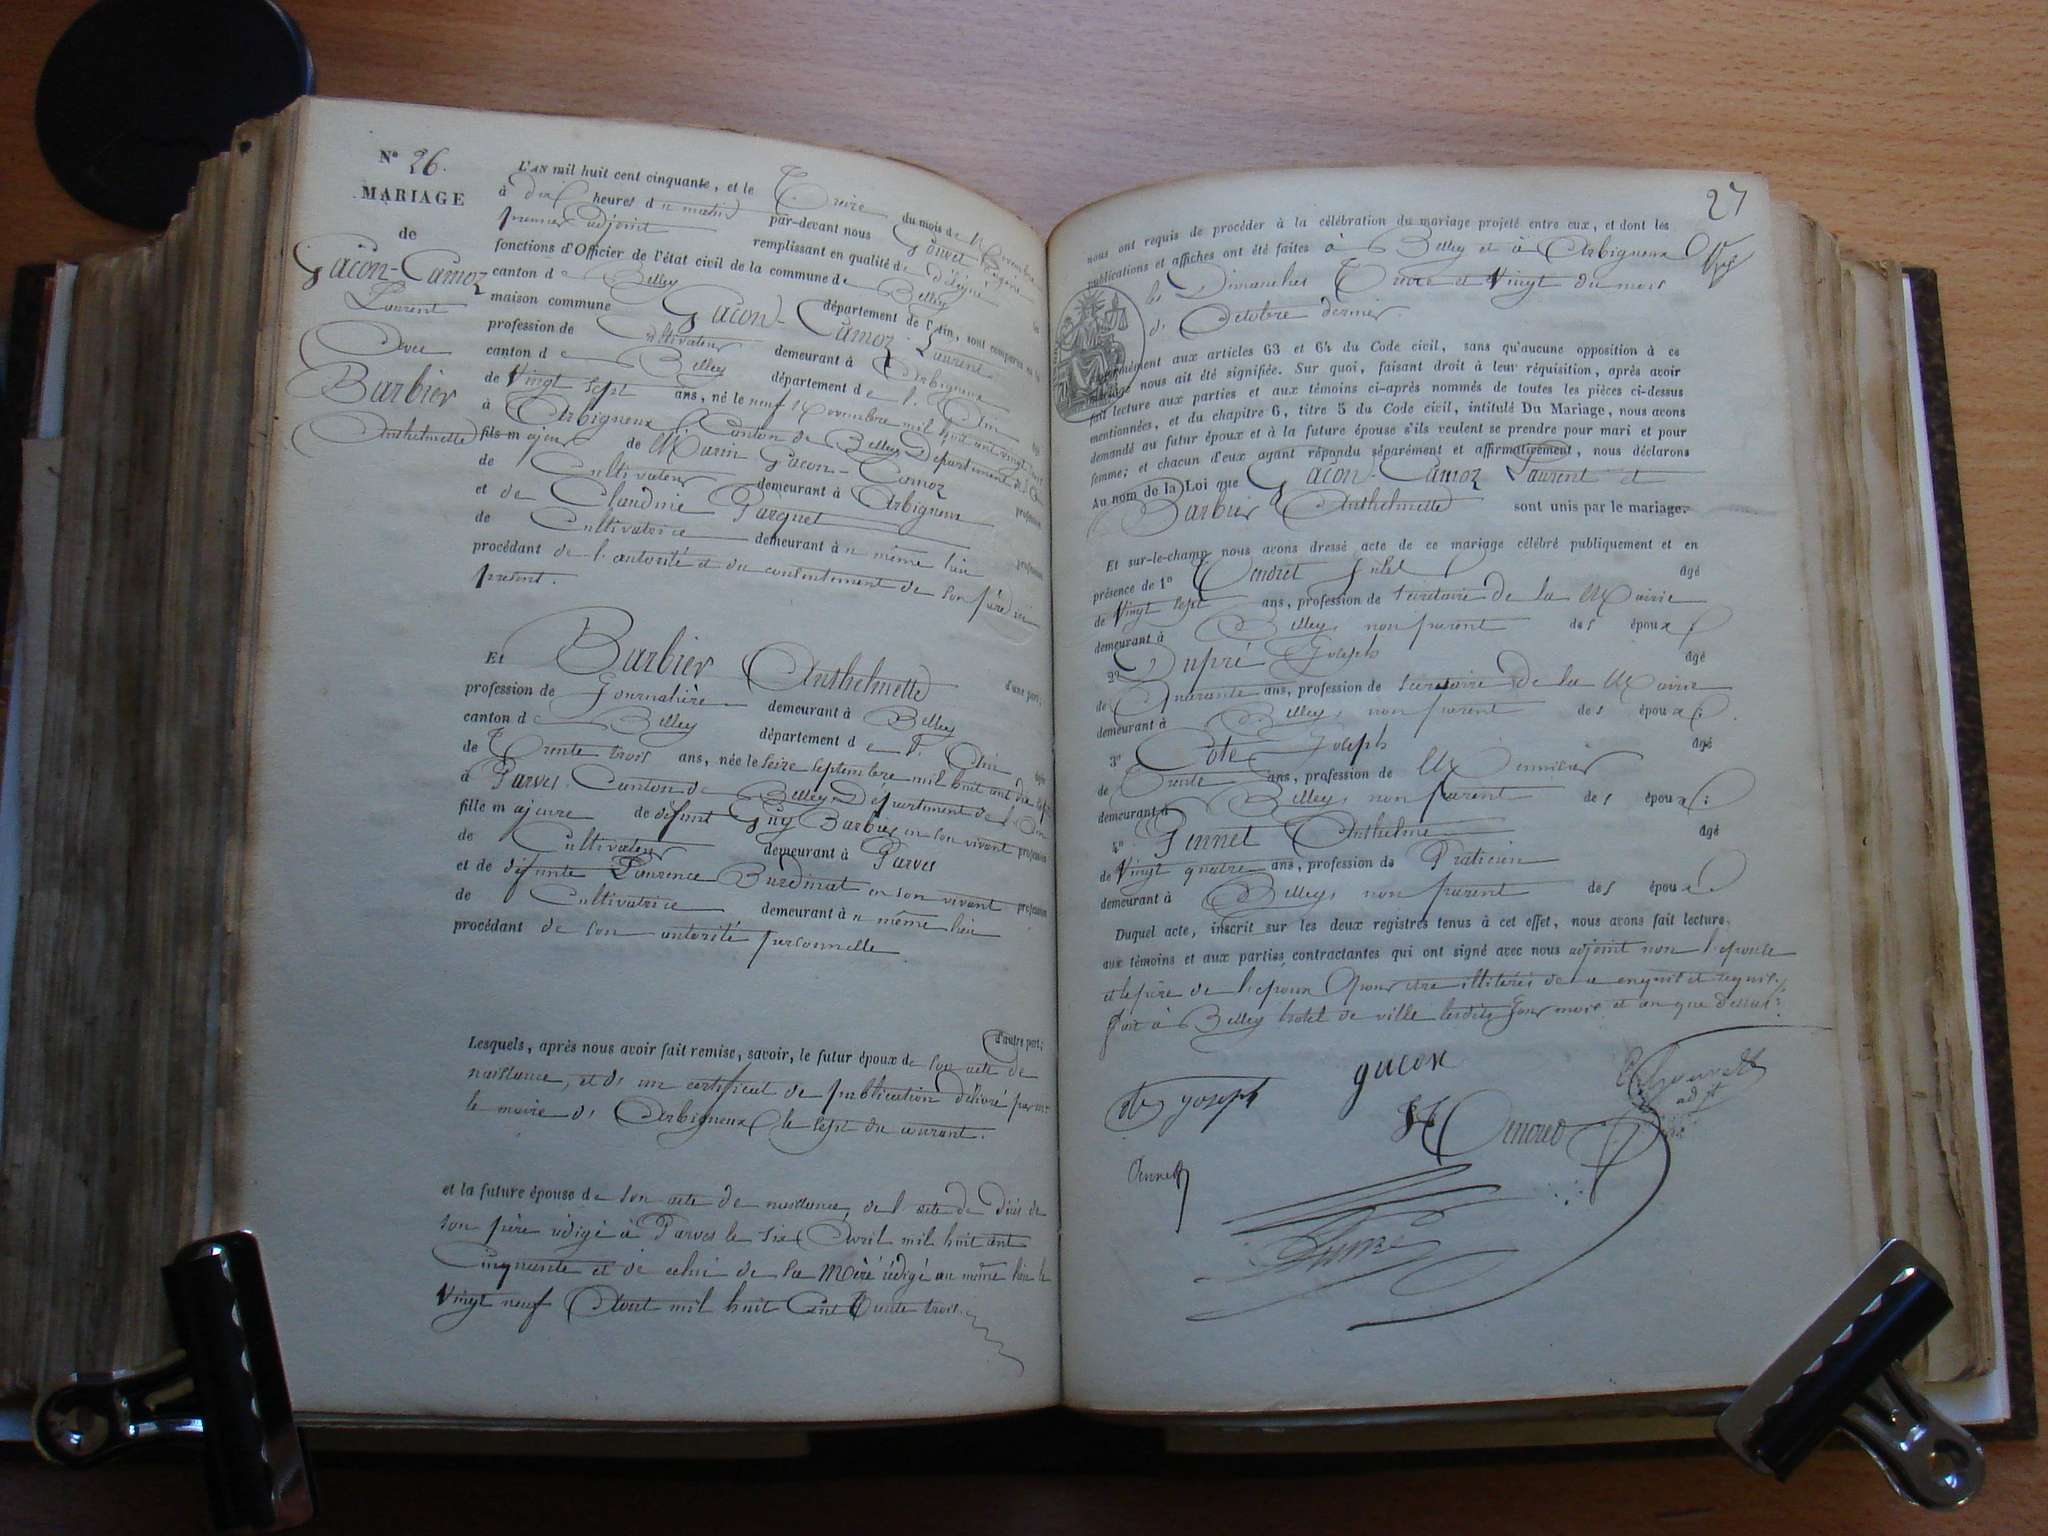 N° 26.
MARIAGE
de
Gacon-Camoz
Laurent
Avec
Barbier
Anthelmette
L'AN mil huit cent cinquante, et le Treize du mois de Novembre
à dix heures du matin par-devant nous Gouvet
premier adjoint remplissant en qualité de délégué les
fonctions d'Officier de l'état civil de la commune de Belley
canton de Belley département de l'Ain, sont comparus en la
maison commune Gacon-Camoz Laurent
profession de Cultivateur demeurant à Arbigneux
canton de Belley département de l'Ain âgé
de Vingt sept ans, né le neuf Novembre mil huit cent vingt
à Arbigneux Canton de Belley Département de l'Ain
fils majeur de Marin Gacon-Camoz profession
de Cultivateur demeurant à Arbigneux
et de Claudine Parquet profession
de Cultivatrice demeurant au même lieu
procédant de l'autorité et du consentement de son père ici
présent.
d'une part;
Et Barbier Anthelmette
profession de Journalière demeurant à Belley
canton de Belley département de l'Ain âgée
de Trente trois ans, née le seize septembre mil huit cent dix sept
à Parves Canton de Belley Département de l'Ain
fille majeure de défunt Guy Barbier en son vivant profession
de Cultivateur demeurant à Parves
et de défunte Laurence Burdinat en son vivant profession
de Cultivatrice demeurant au même lieu
procédant de son autorité personnelle
d'autre part;
Lesquels, après nous avoir fait remise, savoir, le futur époux de son acte de
naissance, et d'un certificat de publication délivré par mr
le maire d'Arbigneux le sept du courant.
et la future épouse de son acte de naissance, de l'acte de décès de
son père rédigé à Parves le six Avril mil huit cent
Cinquante et de celui de sa Mère rédigé au même lieu le
Vingt neuf Août mil huit Cent Trente trois
27
nous ont requis de procéder à la célébration du mariage projeté entre eux, et dont les
publications et affiches ont été faites à Belley et à Arbigneux
les Dimanches Treize et Vingt du mois
d'Octobre dernier.
conformément aux articles 63 et 64 du Code civil, sans qu'aucune opposition à ce
mariage nous ait été signifiée. Sur quoi, faisant droit à leur réquisition, après avoir
fait lecture aux parties et aux témoins ci-après nommés de toutes les pièces ci-dessus
mentionnées, et du chapitre 6, titre 5 du Code civil, intitulé Du Mariage, nous avons
demandé au futur époux et à la future épouse s'ils veulent se prendre pour mari et pour
femme; et chacun d'eux ayant répondu séparément et affirmativement, nous déclarons
Au nom de la Loi que Gacon-Camoz Laurent et
Barbier Anthelmette sont unis par le mariage.
Et sur-le-champ nous avons dressé acte de ce mariage célébré publiquement et en
présence de 1° âgé
de Vingt sept ans, profession de secretaire de la Mairie
demeurant à Belley, non parent des époux;
2° Dupré Joseph âgé
de Quarante ans, profession de secretaire de la Mairie
demeurant à Belley, non parent des époux;
3° Cote Joseph âgé
de Trente ans, profession de Menuisier
demeurant à Belley, non parent des époux;
4° Pennet Anthelme âgé
de Vingt quatre ans, profession de Praticien
demeurant à Belley, non parent des époux.
Duquel acte, inscrit sur les deux registres tenus à cet effet, nous avons fait lecture
aux témoins et aux parties contractantes qui ont signé avec nous adjoint non l'épouse
et le père de l'époux pour être illitérés de ce enquis et requis.
Fait à Belley hotel de ville lesdits Jour mois et an que Dessus.
gacon
joseph
adjt